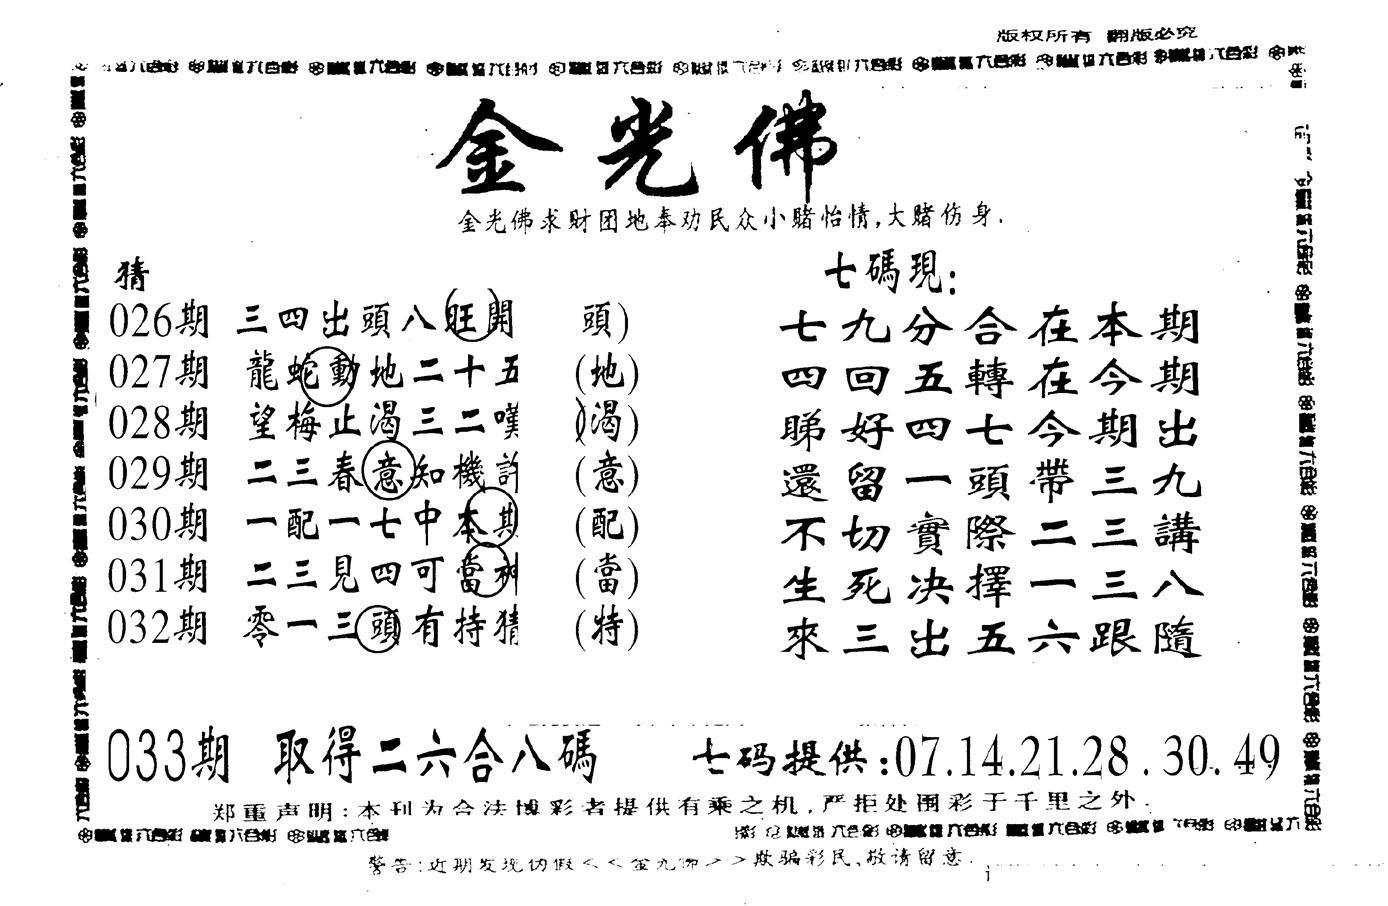 版权所有 翻版必究
金光佛
金光佛求财团地奉劝民众小赌怡情,大赌伤身.
猜
026期 三四出頭八旺開 頭)
027期 龍蛇動地二十五 (地)
028期 望梅止渴三二嘆 (渴)
029期 二三春意知機許 (意)
030期 一配一七中本期 (配)
031期 二三見四可當 (當)
032期 零一三頭有持猜 (特)
七碼現:
七九分合在本期
四回五轉在今期
睇好四七今期出
還留一頭帶三九
不切實際二三講
生死决擇一三八
來三出五六跟隨
033期 取得二六合八碼
七码提供:07.14.21.28.30.49
郑重声明:本刊为合法博彩者提供有乘之机,严拒处围彩于千里之外.
警告:近期发现伪假<<金光佛>>欺骗彩民,敬请留意.